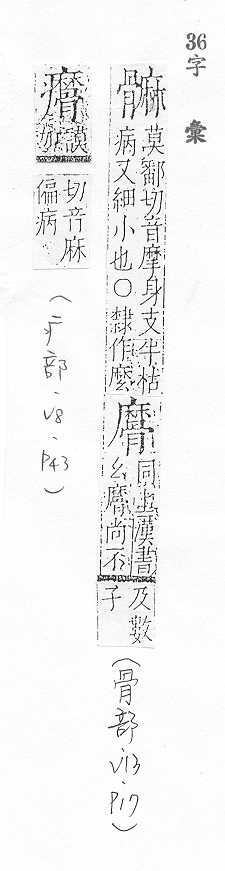 36字 彙
髍
莫鄱切音摩身支半枯
病又細小也○隸作麼
䯢
同上漢書
幺䯢尚不
及數
子
(骨部、V13、P17)
謨
切音麻
偏病
(疒部、V8、P43)